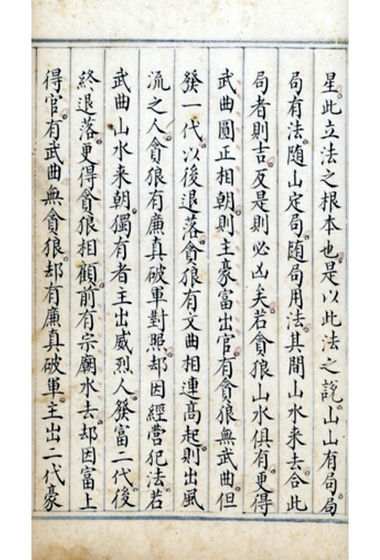 星此立法之根本也是以此法之說山山有局局
局有法隨山定局隨局用法其間山水来去合此
局者則吉反是則必凶矣若貪狼山水俱有更得
武曲圓正相朝則主豪富出官有貪狼無武曲但
發一代以後退落貪狼有文曲相連高起則出風
流之人貪狼有廉真破軍對照却因經營犯法若
武曲山水来朝獨有者主出威烈人發富二代後
終退落更得貪狼相顧前有宗廟水去却因富上
得官有武曲無貪狼却有廉真破軍主出二代豪